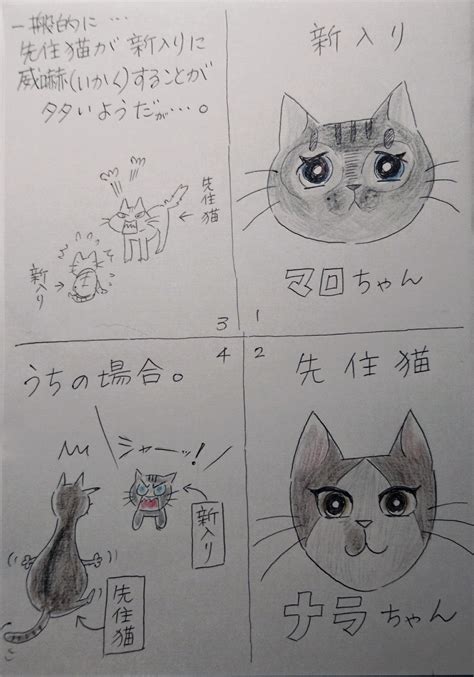 新入り
マロちゃん
1
2
先住猫
ナラちゃん
一般的に…
先住猫が新入りに
威嚇(いかく)することが
多いようだが…。
先住猫
新入り
3
4
うちの場合。
シャーッ!
新入り
先住猫